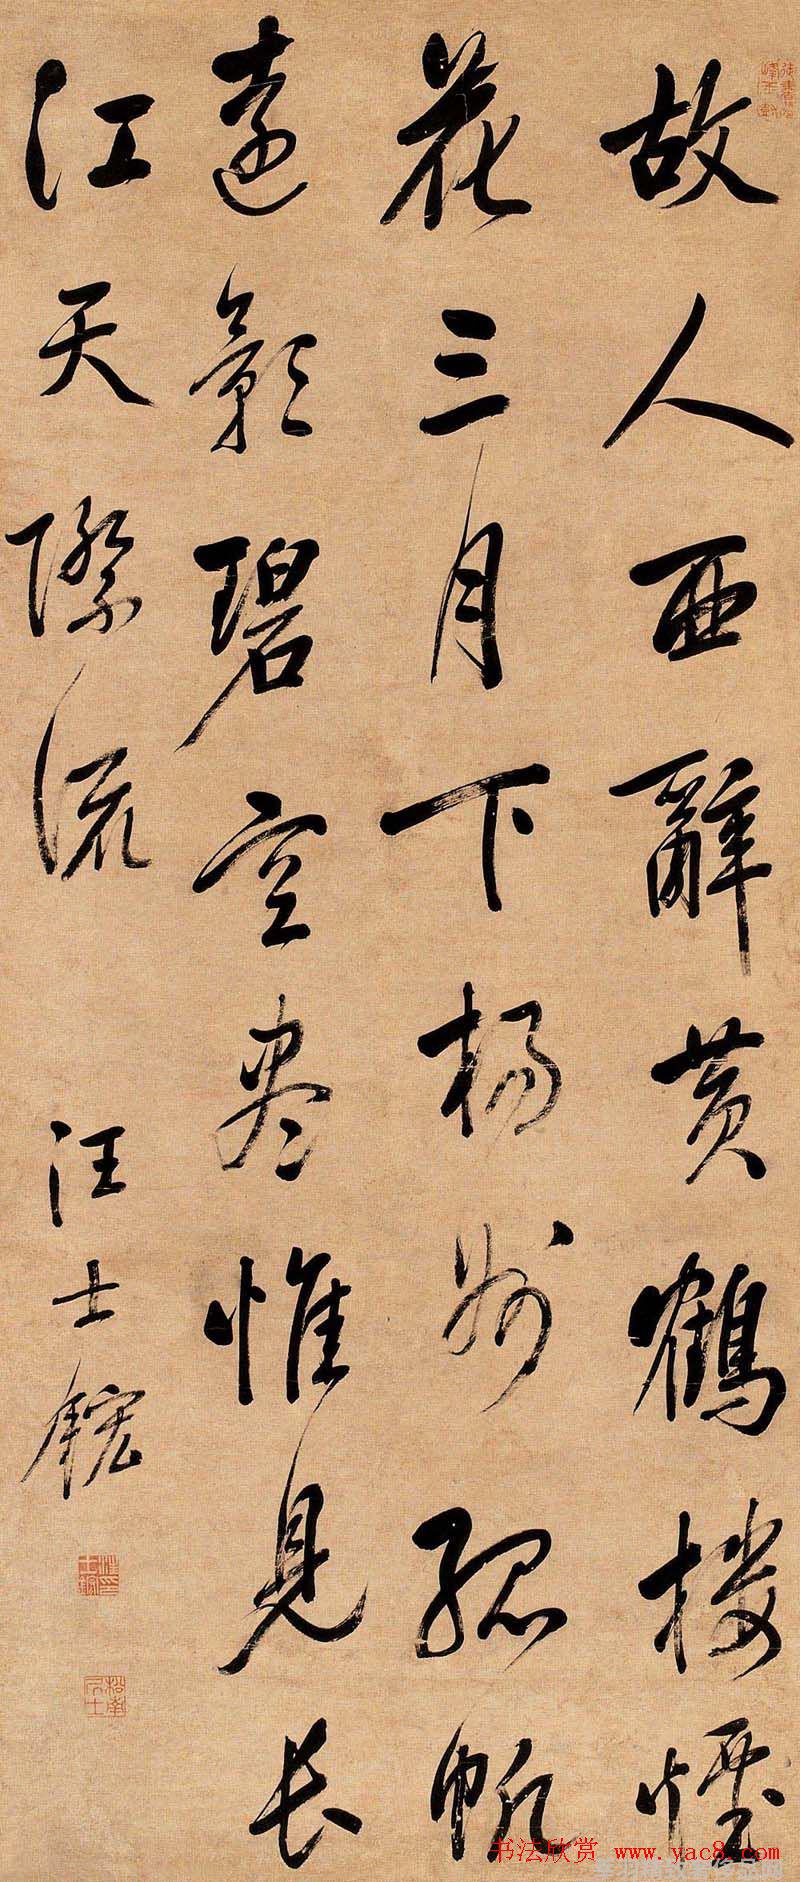 故人西辭黄鶴樓煙
花三月下楊州孤帆
遠影碧空盡惟見長
江天際流
汪士鋐
松南居士
书法欣赏 www.yac8.com